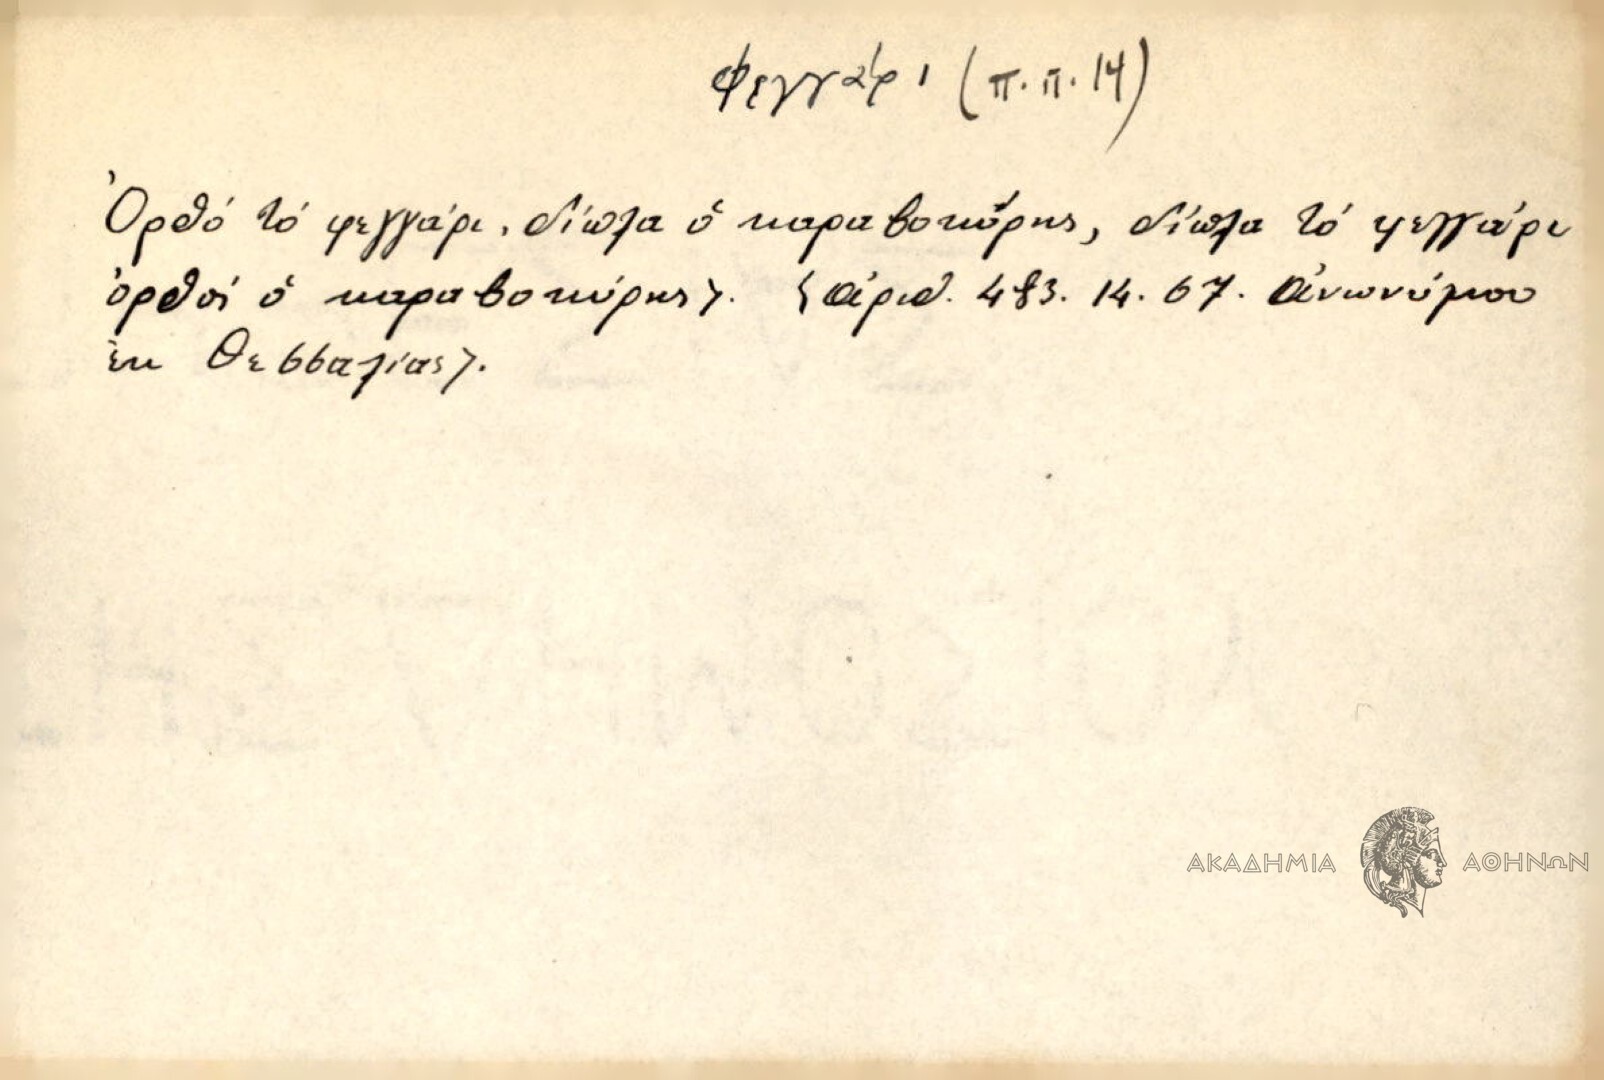 Φεγγάρι (π.π. 14)
Ὀρθό τό φεγγάρι, δίπλα ὁ καραβοκύρης, δίπλα τό φεγγάρι
ὀρθοί ὁ καραβοκύρης〉. 〈ἀριθ. 483. 14. 67. Ἀνωνύμου
ἐκ Θεσσαλίας〉.
ΑΚΑΔΗΜΙΑ ΑΘΗΝΩΝ